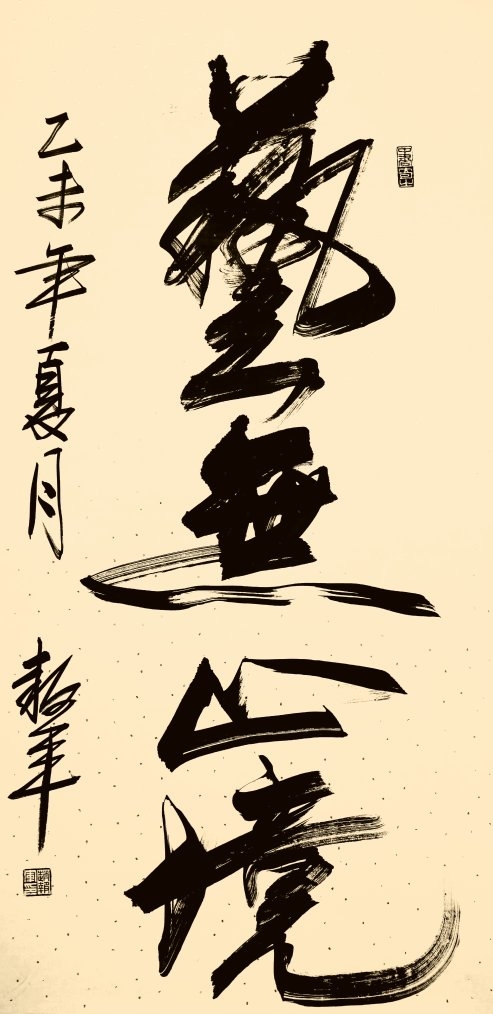 藝無止境
乙未年夏月